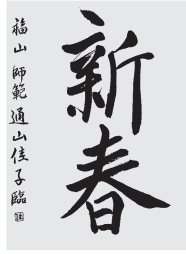 新春
福山 師範 通山佳子臨